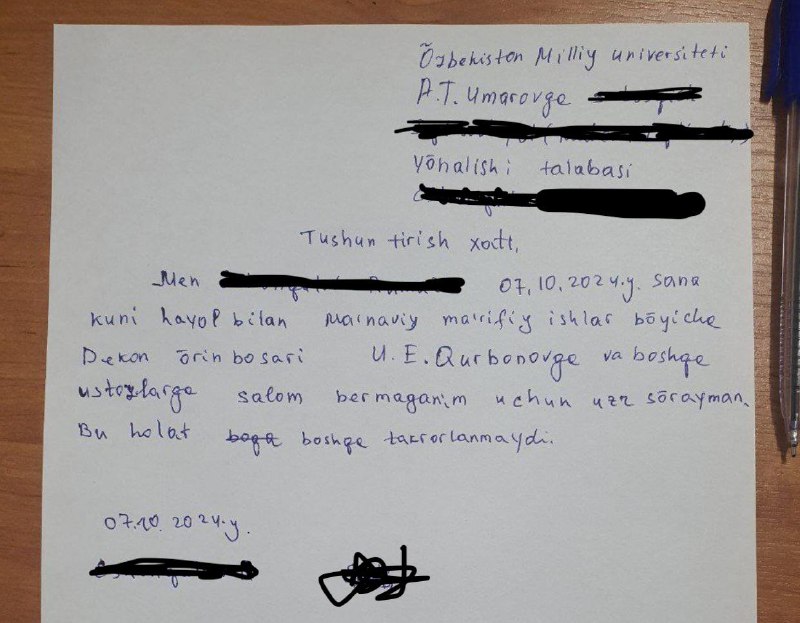 Õzbekiston Milliy universiteti
A.T. Umarovga
yõnalishi talabasi
Tushuntirish xatti,
Men 07.10.2024.y. sana
kuni hayol bilan Ma'naviy ma'rifiy ishlar bõyicha
Dekon õrinbosari U.E.Qurbonovga va boshqa
ustozlarga salom bermaganim uchun uzr sõrayman.
Bu holat boshqa takrorlanmaydi.
07.10.2024.y.